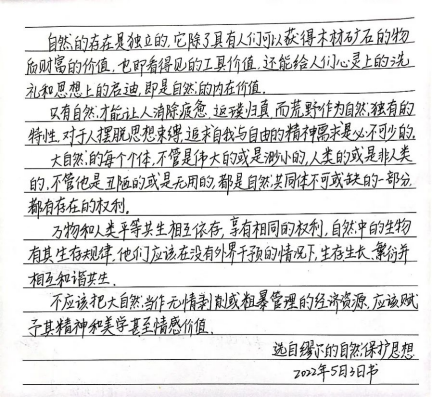 自然的存在是独立的,它除了具有人们可以获得木材矿石的物
质财富的价值,也即看得见的工具价值,还能给人们心灵上的洗
礼和思想上的启迪,即是自然的内在价值.
只有自然,才能让人消除疲惫,返璞归真,而荒野作为自然独有的
特性,对于人摆脱思想束缚,追求自我与自由的精神需求是必不可少的.
大自然的每个个体,不管是伟大的或是渺小的,人类的或是非人类
的,不管他是丑陋的或是无用的,都是自然共同体不可或缺的一部分,
都有存在的权利.
万物和人类平等共生相互依存,享有相同的权利,自然中的生物
有其生存规律,他们应该在没有外界干预的情况下,生存生长,繁衍并
相互和谐共生.
不应该把大自然当作无情剥削或粗暴管理的经济资源,应该赋
予其精神和美学甚至情感价值.
选自缪尔的自然保护思想
2022年5月3日书